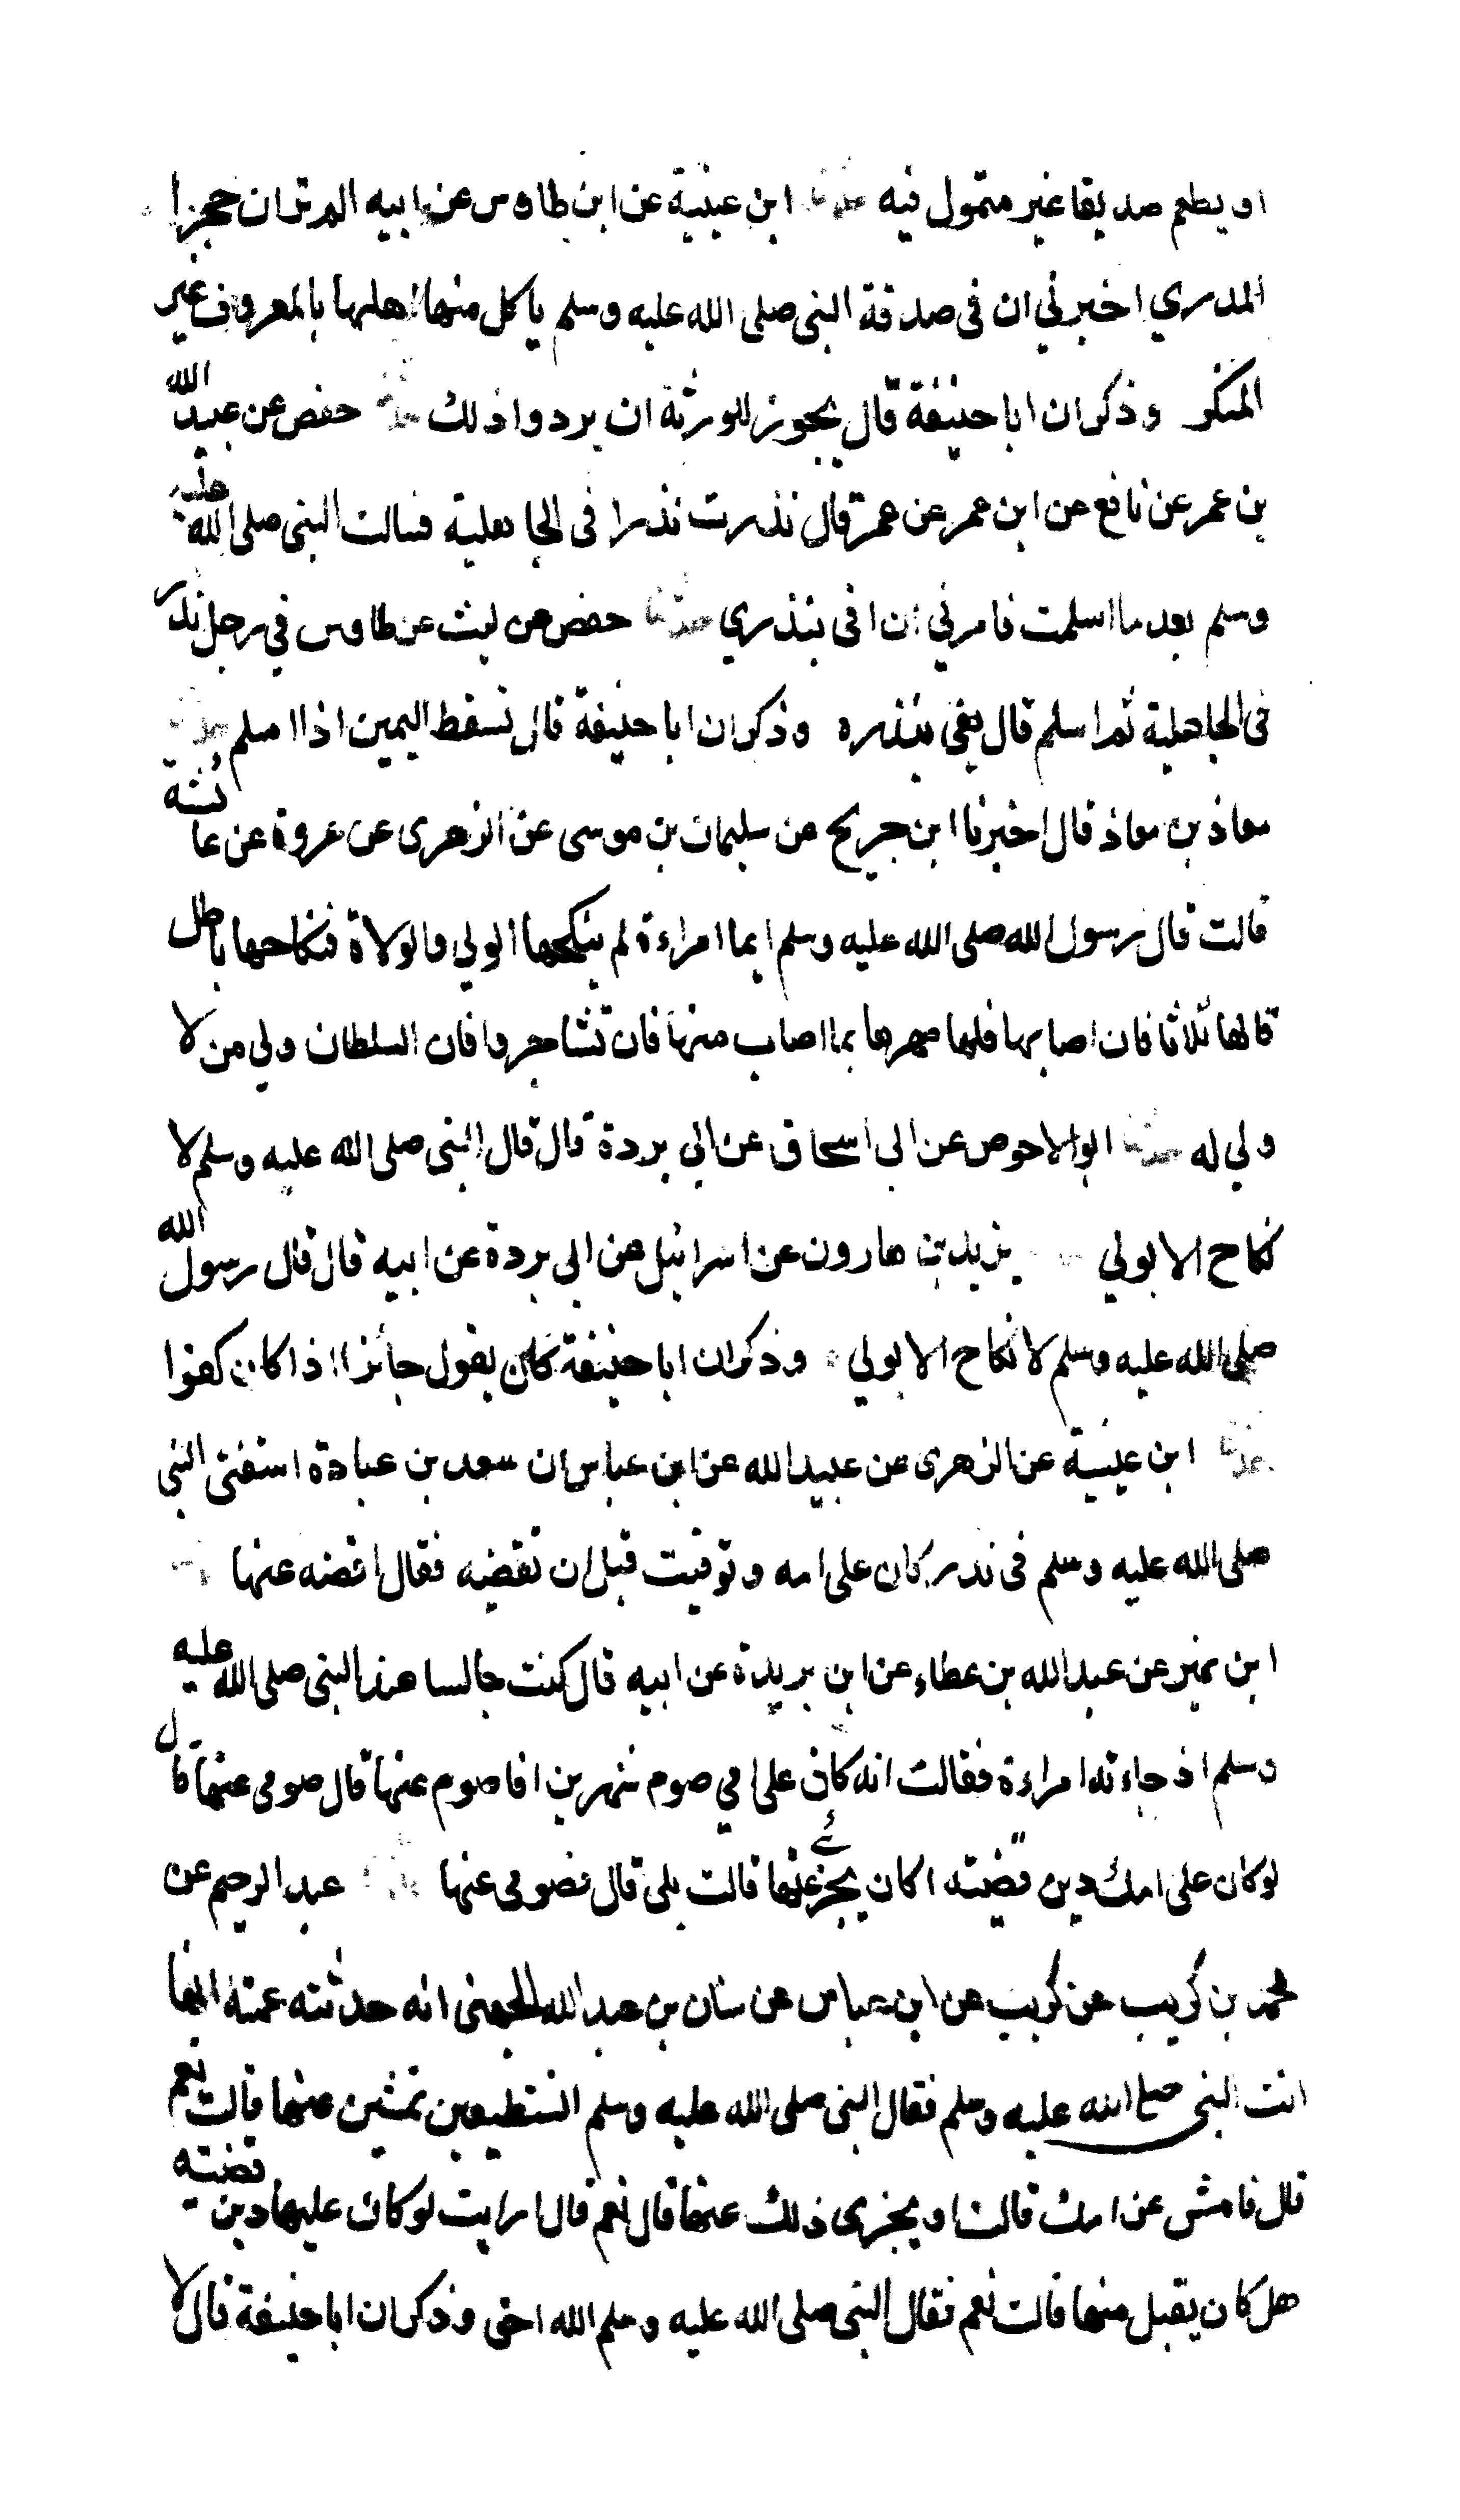 او يطعم صديقا غير متمول فيه حدثنا ابن عيينة عن ابن طاوس عن ابيه الم تر ان حجرا
المدري اخبرني ان فى صدقة النبى صلى الله عليه وسلم ياكل منها اهلها بالمعروف غير
المنكر وذكر ان ابا حنيفة قال يجوز للورثة ان يردوا ذلك حدثنا حفص عن عبيد الله
بن عمر عن نافع عن ابن عمر عن عمر قال نذرت نذرا فى الجاهلية فسالت النبى صلى الله عليه
وسلم بعد ما اسلمت فامرني ان افى بنذري حدثنا حفص عن ليث عن طاوس في رجل نذر
فى الجاهلية ثم اسلم قال يفى بنذره وذكر ان ابا حنيفة قال تسقط اليمين اذا اسلم حدثنا
معاذ بن معاذ قال اخبرنا ابن جريج عن سليمان بن موسى عن الزهرى عن عروة عن عائشة
قالت قال رسول الله صلى الله عليه وسلم ايما امراءة لم ينكحها الولي والولاة فنكاحها باطل
قالها ثلاثا فان اصابها فلها مهرها بما اصاب منها فان تشاجروا فان السلطان ولي من لا
ولي له حدثنا ابو الاحوص عن ابى اسحاق عن ابي بردة قال قال النبى صلى الله عليه وسلم لا
نكاح الا بولي يزيد بن هارون عن اسرائيل عن ابي بردة عن ابيه قال قال رسول الله
صلى الله عليه وسلم لا نكاح الا بولي وذكر ان ابا حنيفة كان يقول جائز اذا كان كفوا
حدثنا ابن عيينة عن الزهرى عن عبيد الله عن ابن عباس ان سعد بن عبادة استفتى النبي
صلى الله عليه وسلم فى نذر كان على امه وتوفيت قبل ان تقضيه فقال اقضه عنها
ابن نمير عن عبد الله بن عطاء عن ابن بريدة عن ابيه قال كنت جالسا عند النبى صلى الله عليه
وسلم اذ جاءته امراءة فقالت انه كان على امي صوم شهرين افاصوم عنها قال صومى عنها قال
لو كان على امك دين قضيته اكان يجزئ عنها قالت بلى قال فصومى عنها عبد الرحيم عن
محمد بن كريب عن كريب عن ابن عباس عن سنان بن عبد الله الجهنى انه حدثته عمته انها
اتت النبى صلى الله عليه وسلم فقال النبى صلى الله عليه وسلم اتستطيعين تمشين عنها قالت نعم
قال فامش عن امك قالت او يجزى ذلك عنها قال نعم قال ارايت لو كان عليها دين قضيته
هل كان يقبل منها قالت نعم فقال النبى صلى الله عليه وسلم الله احق وذكر ان ابا حنيفة قال لا